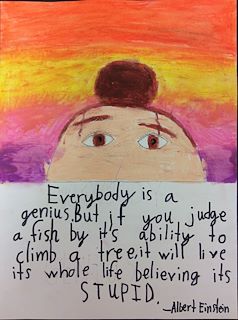 Everybody is a
genius.But if you judge
a fish by it's ability to
climb a tree,it will live
its whole life believing its
STUPID.
-Albert Einstein